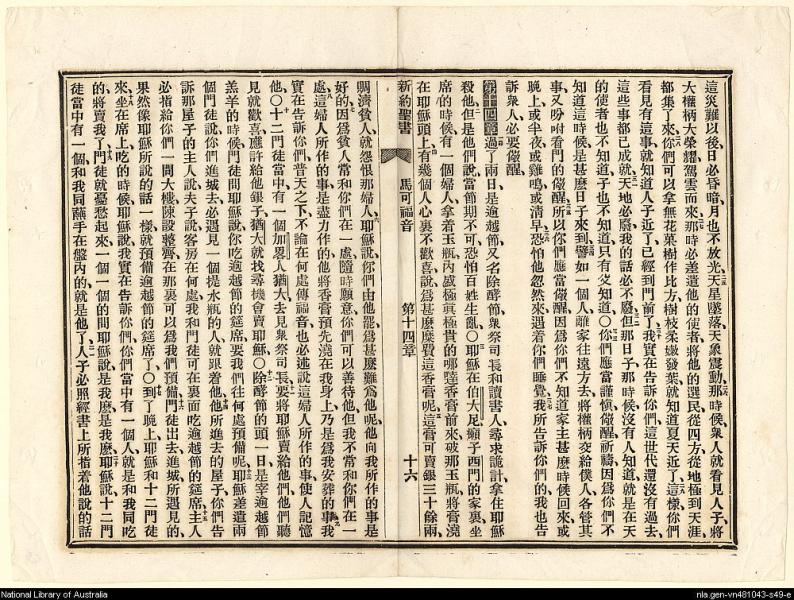 這災難以後日必昏暗月也不放光天星墜落天象震動那時候衆人就看見人子將
大權柄大榮耀駕雲而來那時必差遣他的使者將他的選民從四方從地極到天涯
都集了來你們可以拿無花菓樹作比方樹枝柔嫩發葉就知道夏天近了這樣你們
看見有這事就知道人子近了已經到門前了我實在告訴你們這世代還沒有過去
這些事都已成就天地必廢我的話必不廢但那日子那時候沒有人知道就是在天
的使者也不知道子也不知道只有父知道〇你們應當謹慎儆醒祈禱因爲你們不
知道這時候是甚麼日子來到譬如一個人離家往遠方去將權柄交給僕人各管其
事又吩咐看門的儆醒所以你們應當儆醒因爲你們不知道家主甚麼時候回來或
晚上或半夜或雞鳴或清早恐怕他忽然來遇着你們睡覺我所告訴你們的我也告
訴衆人必要儆醒
第十四章過了兩日是逾越節又名除酵節衆祭司長和讀書人尋求詭計拿住耶穌
殺他但是他們說當節期不可恐怕百姓生亂〇耶穌在伯大尼癩子西門的家裏坐
席的時候有一個婦人拿着玉瓶內盛極眞極貴的哪噠香膏前來破那玉瓶將膏澆
在耶穌頭上有幾個人心裏不歡喜說爲甚麼糜費這香膏呢這膏可賣銀三十餘兩
新約聖書 馬可福音 第十四章 十六
賙濟貧人就怨恨那婦人耶穌說你們由他罷爲甚麼難爲他呢他向我所作的事是
好的因爲貧人常和你們在一處隨時願意你們可以善待他但我不常和你們在一
處這婦人所作的事是盡力作的他將香膏預先澆在我身上乃是爲我安葬的事我
實在告訴你們普天之下不論在何處傳福音也必述說這婦人所作的事使人記憶
他〇十二門徒當中有一個加畧人猶大去見衆祭司長要將耶穌賣給他們他們聽
見就歡喜應許給他銀子猶大就找尋機會賣耶穌〇除酵節的頭一日是宰逾越節
羔羊的時候門徒問耶穌說你吃逾越節的筵席要我們往何處預備呢耶穌差遣兩
個門徒說你們進城去必遇見一個提水瓶的人就跟着他他所進去的屋子你們告
訴那屋子的主人說夫子說客房在何處我和門徒可在裏面吃逾越節的筵席主人
必指給你們一間大樓陳設整齊在那裏可以爲我們預備門徒出去進城所遇見的
果然像耶穌所說的話一樣就預備逾越節的筵席了〇到了晚上耶穌和十二門徒
來坐在席上吃的時候耶穌說我實在告訴你們你們當中有一個人就是和我同吃
的將賣我了門徒就憂愁起來一個一個的問耶穌說是我麼是我麼耶穌說十二門
徒當中有一個和我同蘸手在盤內的就是他了人子必照經書上所指着他說的話
National Library of Australia
nla.gen-vn481043-s49-e